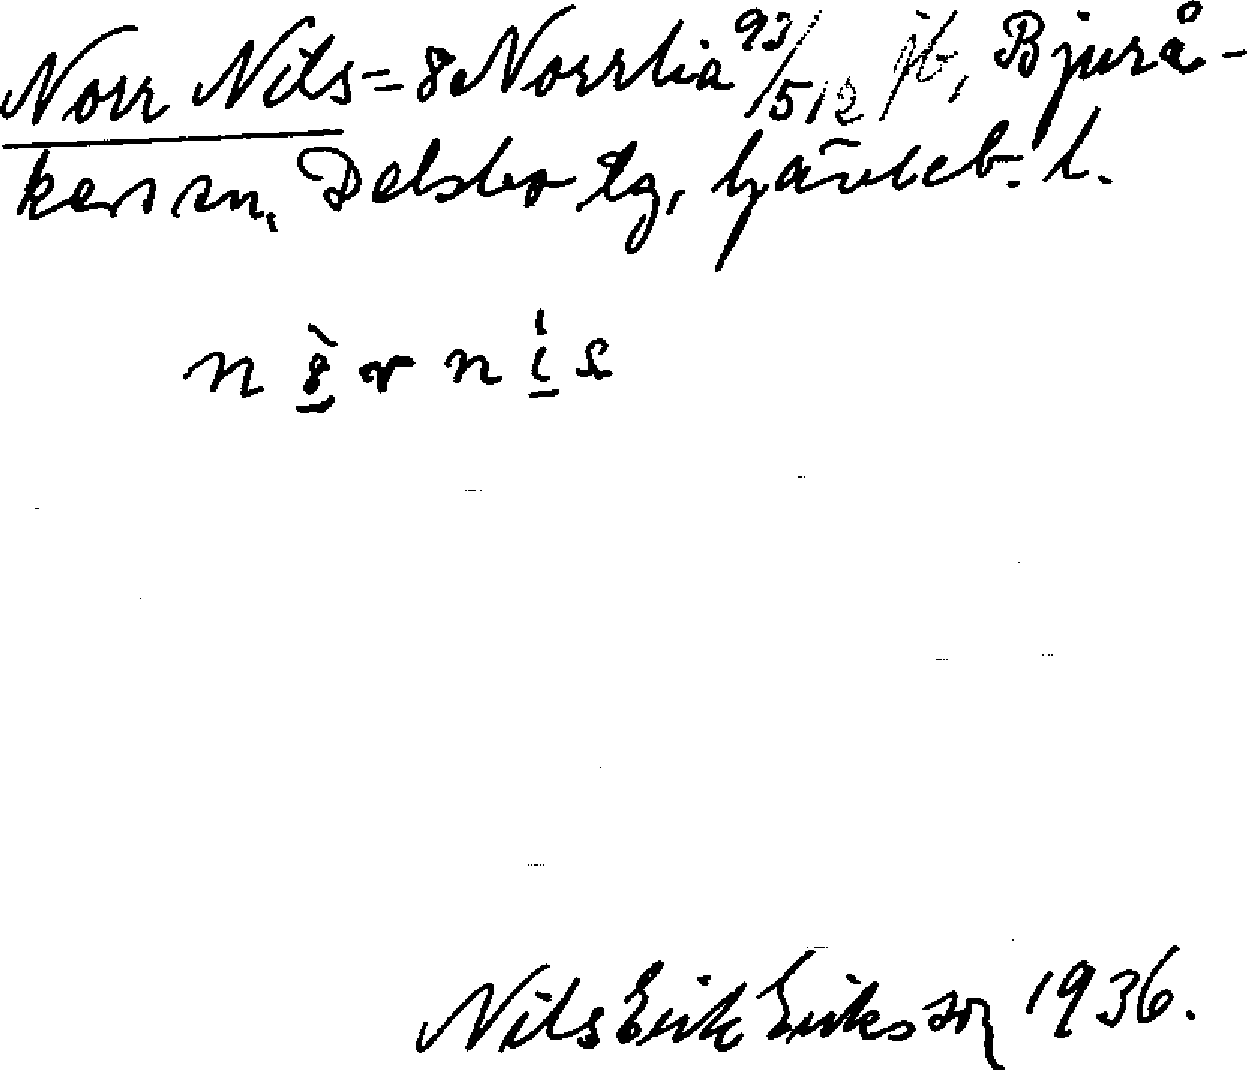 Norr Nils = 8 Norrlia 93/512 jb, Bjurå-
kers sn, Delsbo tg, Gävleb. l.
n 8̀ r n i̍ s
Nils Erik Eriksson 1936.